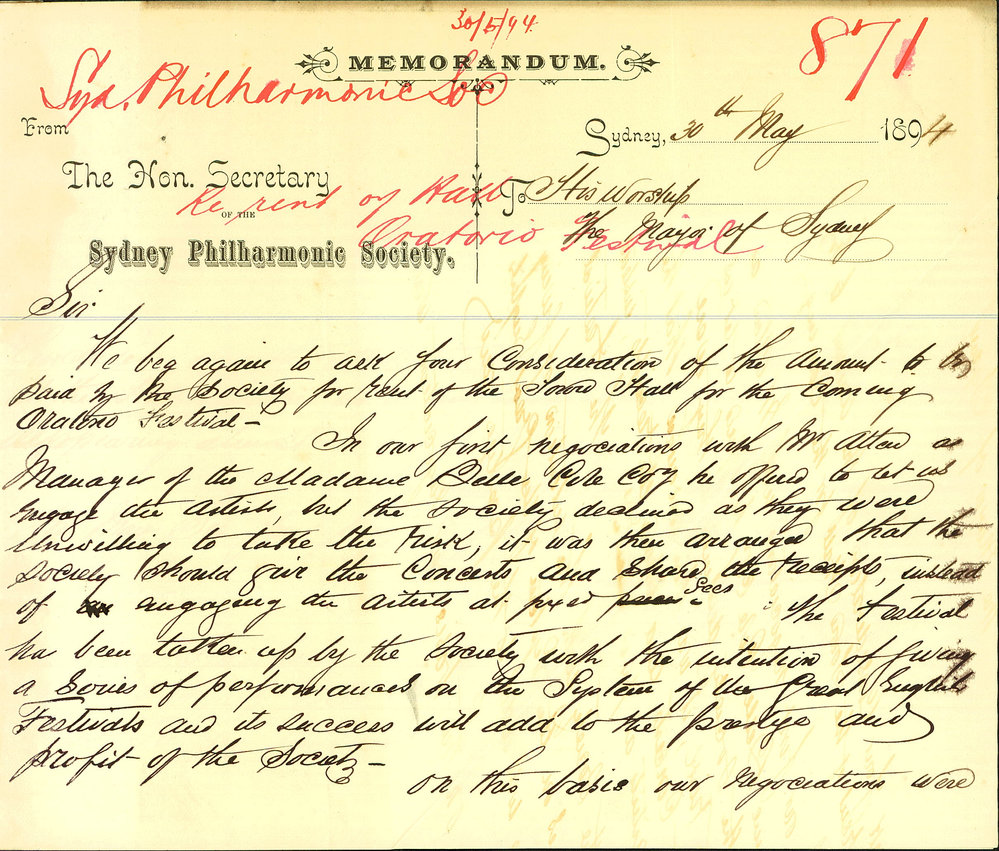 30/5/94
MEMORANDUM.
871
Syd. Philharmonic Soc
From
Sydney, 30th May 1894
The Hon. Secretary
Re rent of Hall
OF THE
To His Worship
Oratorio Festival
The Mayor of Sydney
Sydney Philharmonic Society.
Sir
We beg again to ask your Consideration of the Amount to be
paid by the Society for Rent of the Town Hall for the Coming
Oratorio Festival –
In our first negociations with Mr Allen as
Manager of the Madame Belle Cole Coy he offered to let us
engage the Artists, but the Society declined as they were
Unwilling to take the risk, it was then arranged that the
Society should give the Concerts and share the receipts, instead
of engaging the artists at fixed fees. The Festival
has been taken up by the Society with the intention of giving
a Series of performances on the System of the Great English
Festivals and its success will add to the prestige and
profit of the Society –
On this basis our negociations were